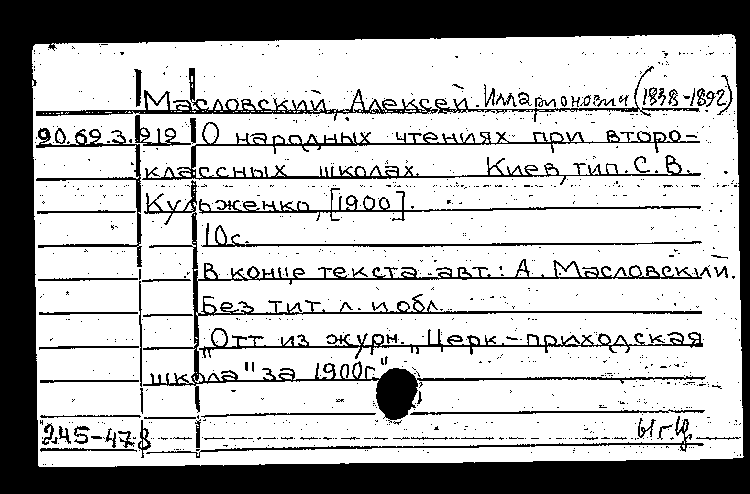 Масловский, Алексей Иларионович (1838-1892)
90.69.3.912 О народных чтениях при второ-
классных школах. Киев, тип. С. В.
Кульженко, [1900].
10с.
В конце текста авт.: А. Масловский.
Без тит. л. и обл.
"Отт из журн. „Церк.-приходская
школа" за 1900г."
245-478